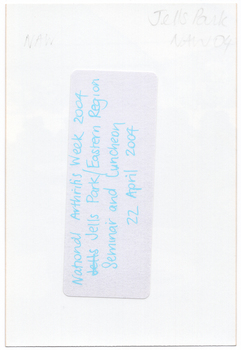 Jells Park
NAW
National Arthritis Week 2004
Jells Jells Park/Eastern Region
Seminar and Luncheon
22 April 2004